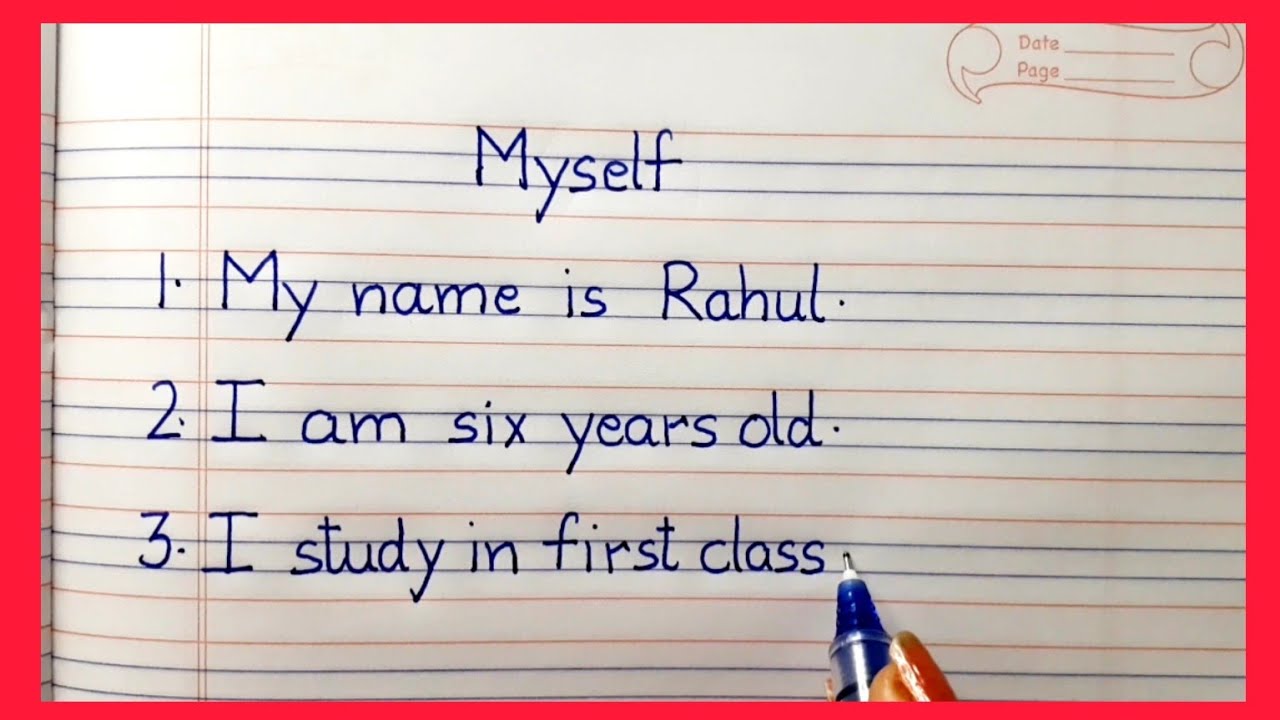 Date
Page
Myself
1. My name is Rahul.
2. I am six years old.
3. I study in first class.